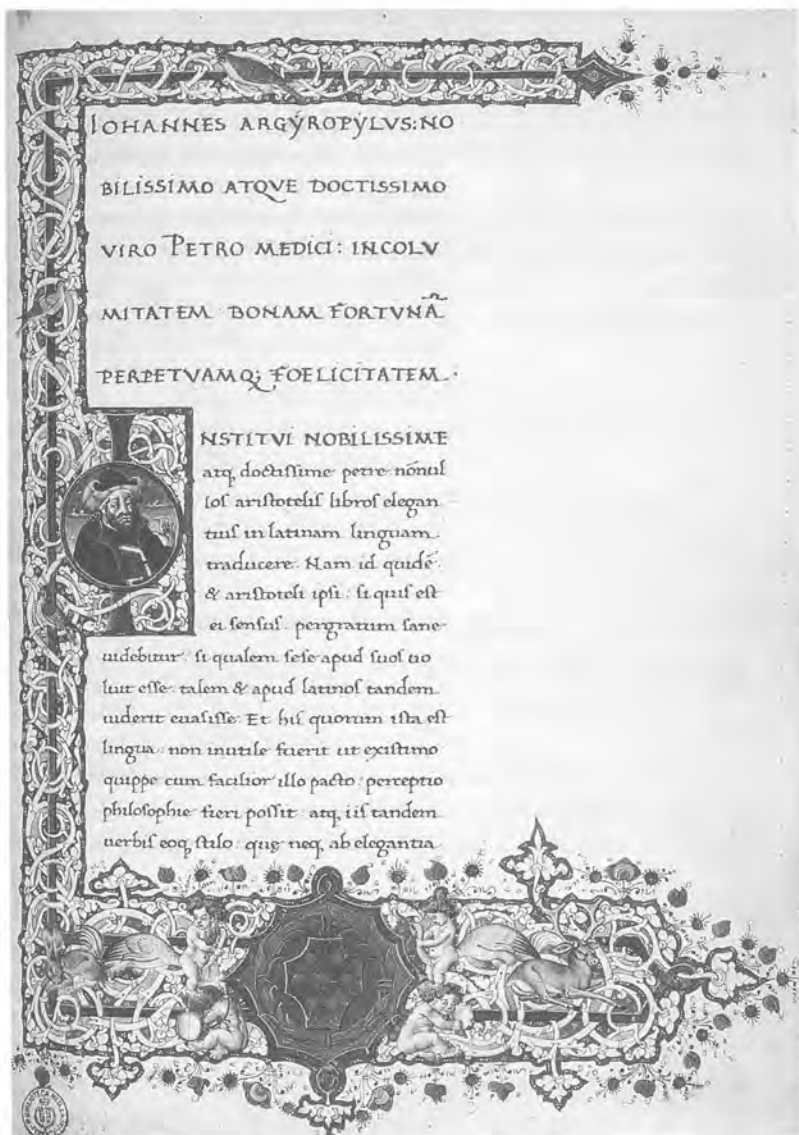 IOHANNES ARGÝROPÝLVS: NO
BILISSIMO ATQVE DOCTISSIMO
VIRO PETRO MEDICI: INCOLV
MITATEM BONAM FORTVNÃ
PERPETVAMQ; FOELICITATEM.
INSTITVI NOBILISSIME
atq, doctissime petre nõnul
los aristotelis libros elegan
tius in latinam linguam
traducere. Nam id quidẽ
& aristoteli ipsi: si quis est
ei sensus. pergratum sane
uidebitur. si qualem sese apud suos uo
luit esse. talem & apud latinos tandem
uiderit euasisse. Et his quorum ista est
lingua. non inutile fuerit ut existimo
quippe cum facilior illo pacto. perceptio
philosophie fieri possit. atq, iis tandem
uerbis eoq, stilo. que neq, ab elegantia